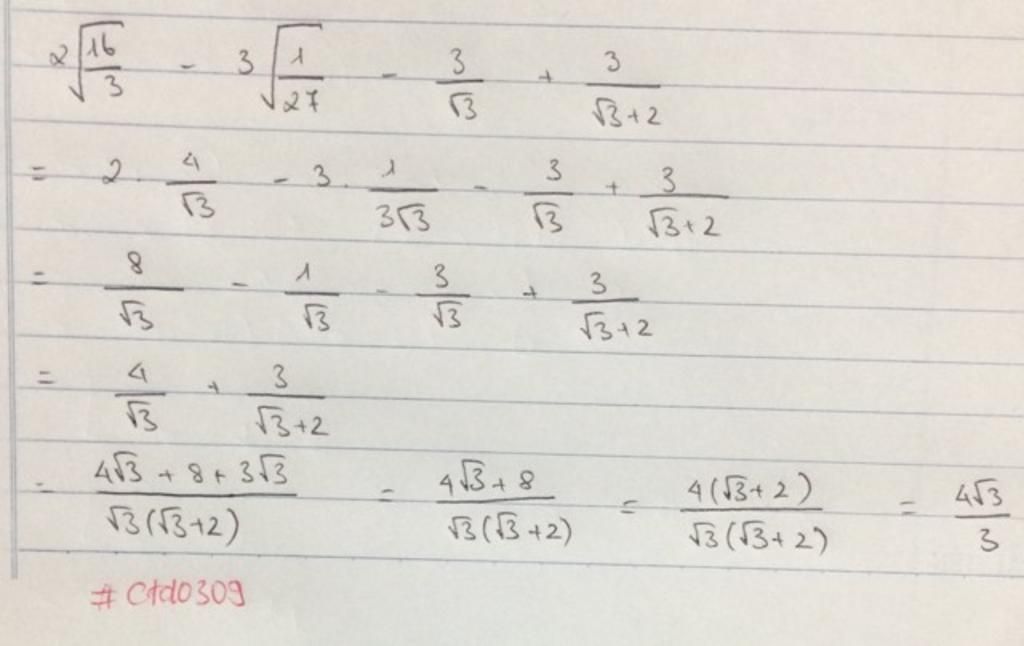 2√(16/3) - 3√(1/27) - 3/√3 + 3/(√3+2)
= 2 . 4/√3 - 3 . 1/(3√3) - 3/√3 + 3/(√3+2)
= 8/√3 - 1/√3 - 3/√3 + 3/(√3+2)
= 4/√3 + 3/(√3+2)
= (4√3 + 8 + 3√3)/(√3(√3+2)) = (4√3+8)/(√3(√3+2)) = 4(√3+2)/(√3(√3+2)) = 4√3/3
# Ctd0309